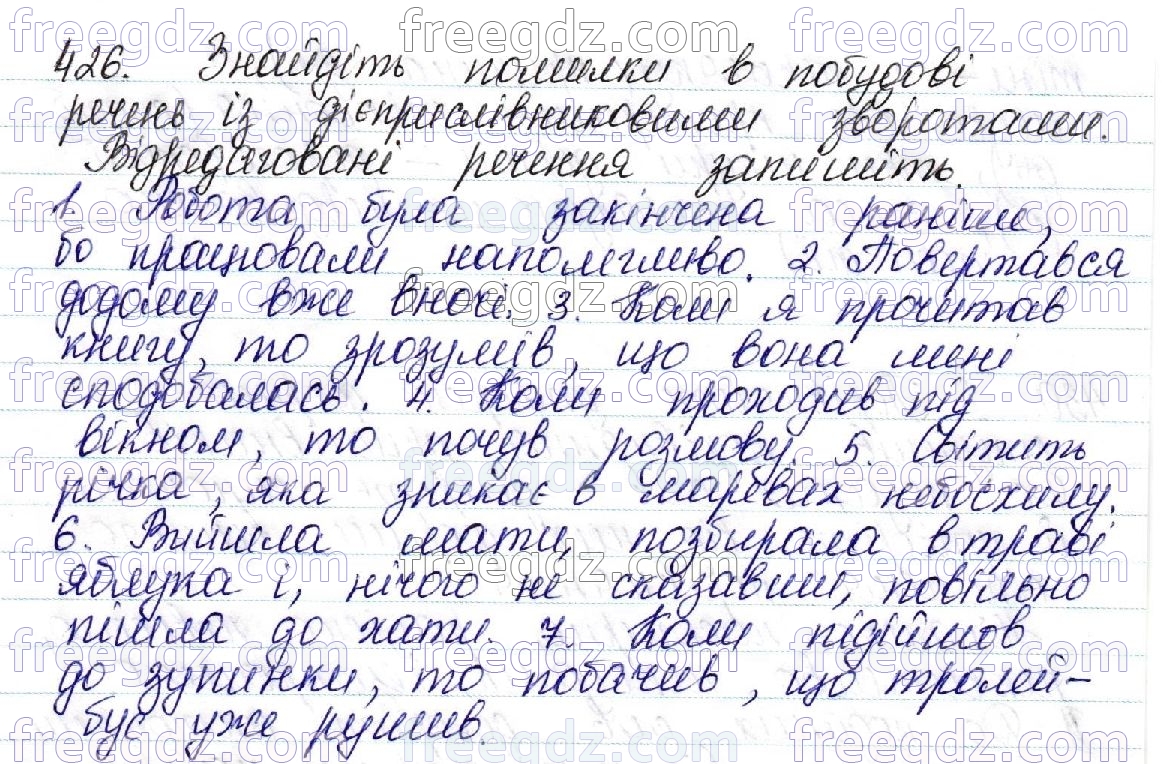 426. Знайдіть помилки в побудові
речень із дієприслівниковими зворотами.
Відредаговані речення запишіть.
1. Робота була закінчена раніше,
бо працювали наполегливо. 2. Повертався
додому вже вночі. 3. Коли я прочитав
книгу, то зрозумів, що вона мені
сподобалась. 4. Коли проходив під
вікном, то почув розмову. 5. Світить
річка, яка зникає в маревах небосхилу.
6. Вийшла мати, позбирала в траві
яблука і, нічого не сказавши, повільно
пішла до хати. 7. Коли підійшов
до зупинки, то побачив, що тролей-
бус уже рушив.